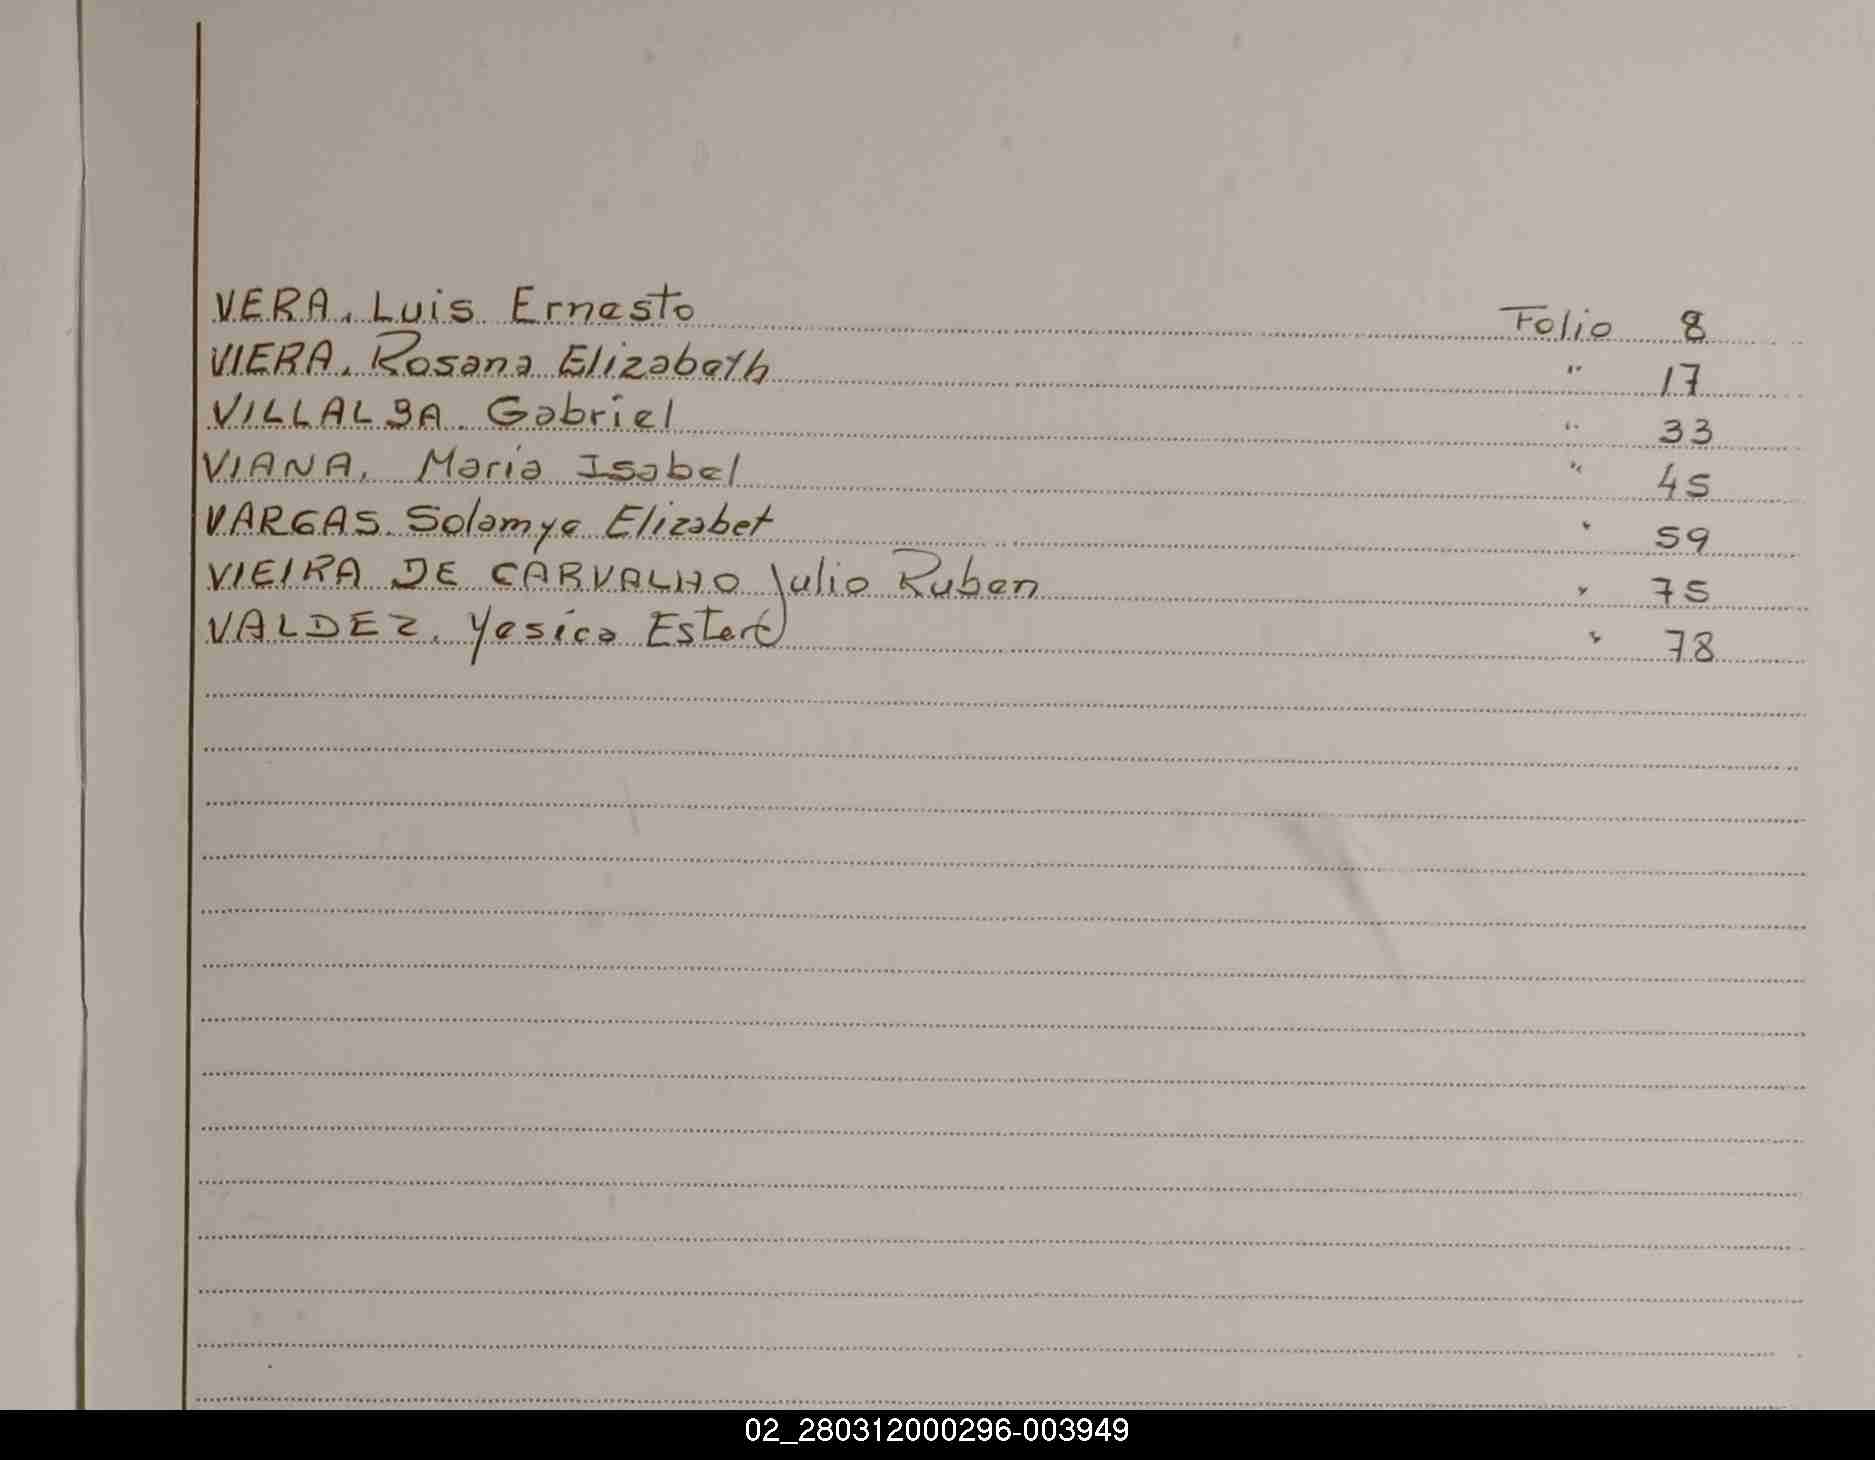 VERA, Luis Ernesto Folio 8
VIERA, Rosana Elizabeth " 17
VILLALBA. Gabriel " 33
VIANA, Maria Isabel " 45
VARGAS. Solamye Elizabet " 59
VIEIRA DE CARVALHO Julio Ruben " 75
VALDEZ, Yesica Ester " 78
02_280312000296-003949